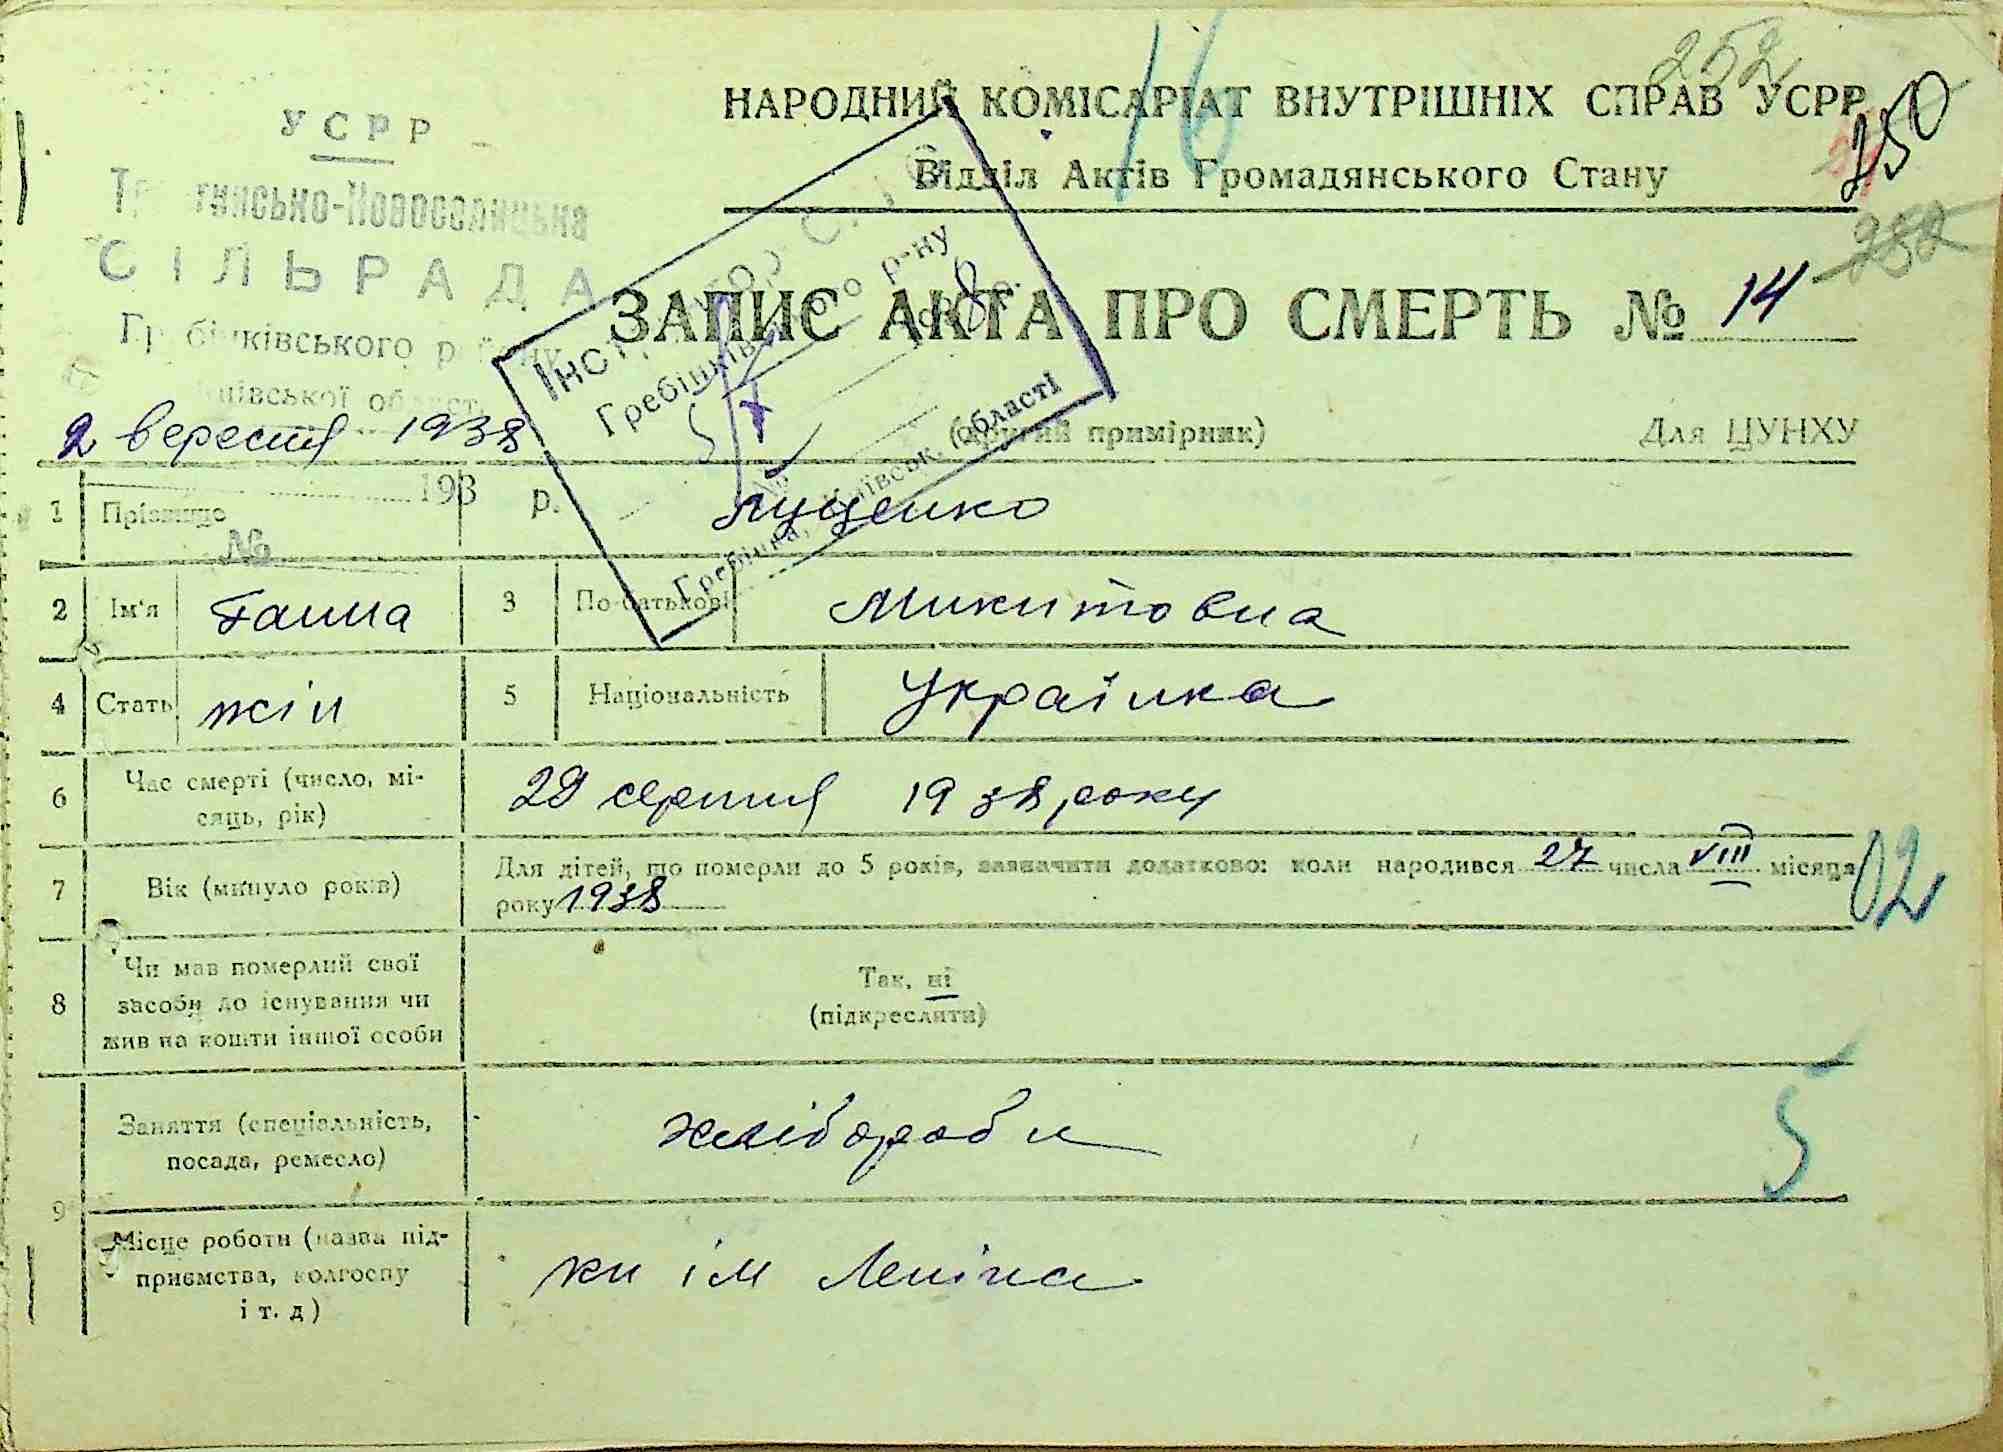 16
252
НАРОДНИЙ КОМІСАРІАТ ВНУТРІШНІХ СПРАВ УСРР
250
Відділ Актів Громадянського Стану
252
УСРР
СІЛЬРАДА
Гребінківського району
ЗАПИС АКТА ПРО СМЕРТЬ № 14
2 вересня 1938
(другий примірник)
Для ЦУНХУ
193 р.
№
Гребінківського р-ну
Київськ. області
1 Прізвище Луценко
2 Ім'я Ганна 3 По-батькові Микитовна
4 Стать жін 5 Національність Українка
6 Час смерті (число, мі-
сяць, рік) 29 серпня 1938 року
7 Вік (минуло років) Для дітей, що померли до 5 років, зазначити додатково: коли народився 27 числа VIII місяця
року 1938
02
8 Чи мав померлий свої
засоби до існування чи
жив на кошти іншої особи
Так, ні
(підкреслити)
9 Заняття (спеціальність,
посада, ремесло) хлібороби
5
Місце роботи (назва під-
приємства, колгоспу
і т. д)
кп ім Леніна